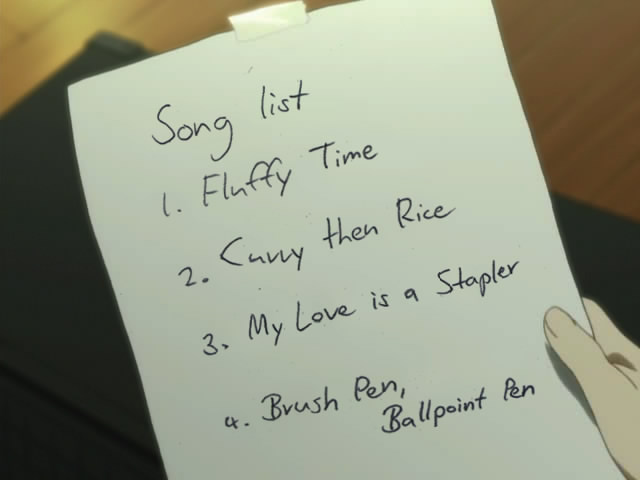 Song list
1. Fluffy Time
2. Curry then Rice
3. My Love is a Stapler
4. Brush Pen,
Ballpoint Pen